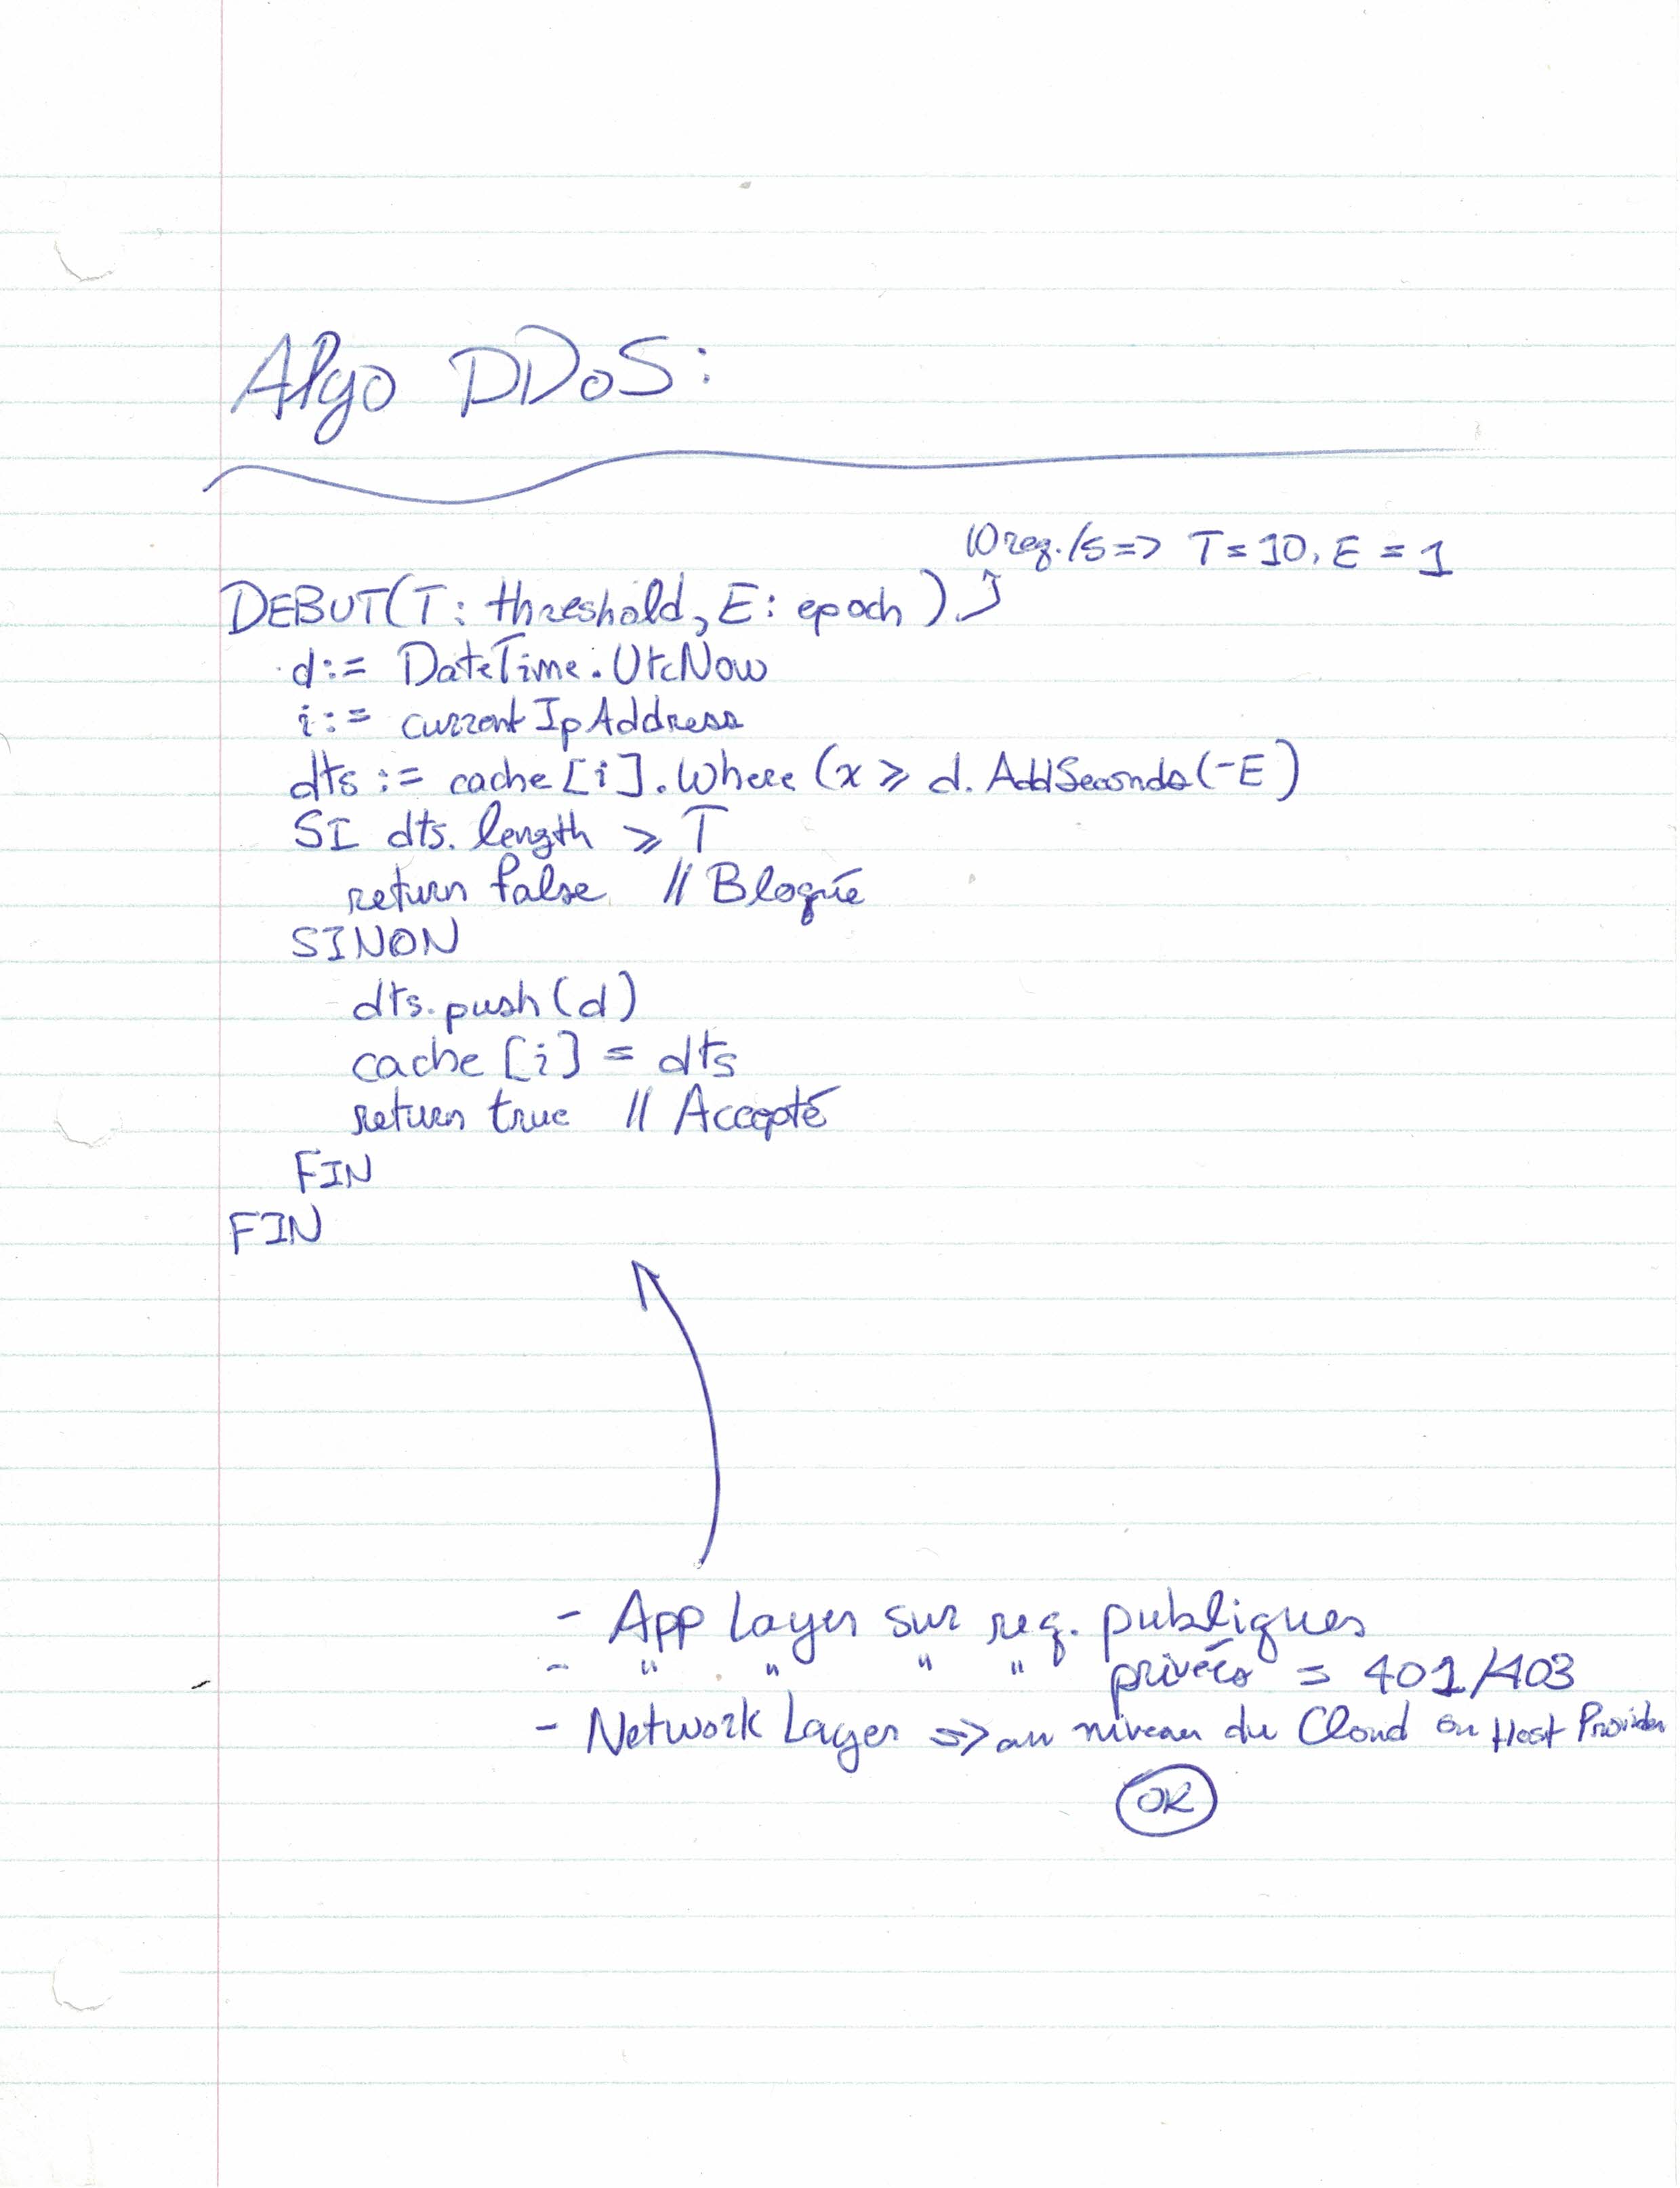 Algo DDoS:
10 req./s => T = 10, E = 1
DEBUT(T: threshold, E: epoch)
d := DateTime.UtcNow
i := currentIpAddress
dts := cache[i].Where(x ⩾ d.AddSeconds(-E)
SI dts.length ⩾ T
return false // Bloqué
SINON
dts.push(d)
cache[i] = dts
return true // Accepté
FIN
FIN
- App Layer sur req. publiques
- " " " " privées = 401/403
- Network Layer => au niveau du Cloud ou Host Provider
OK